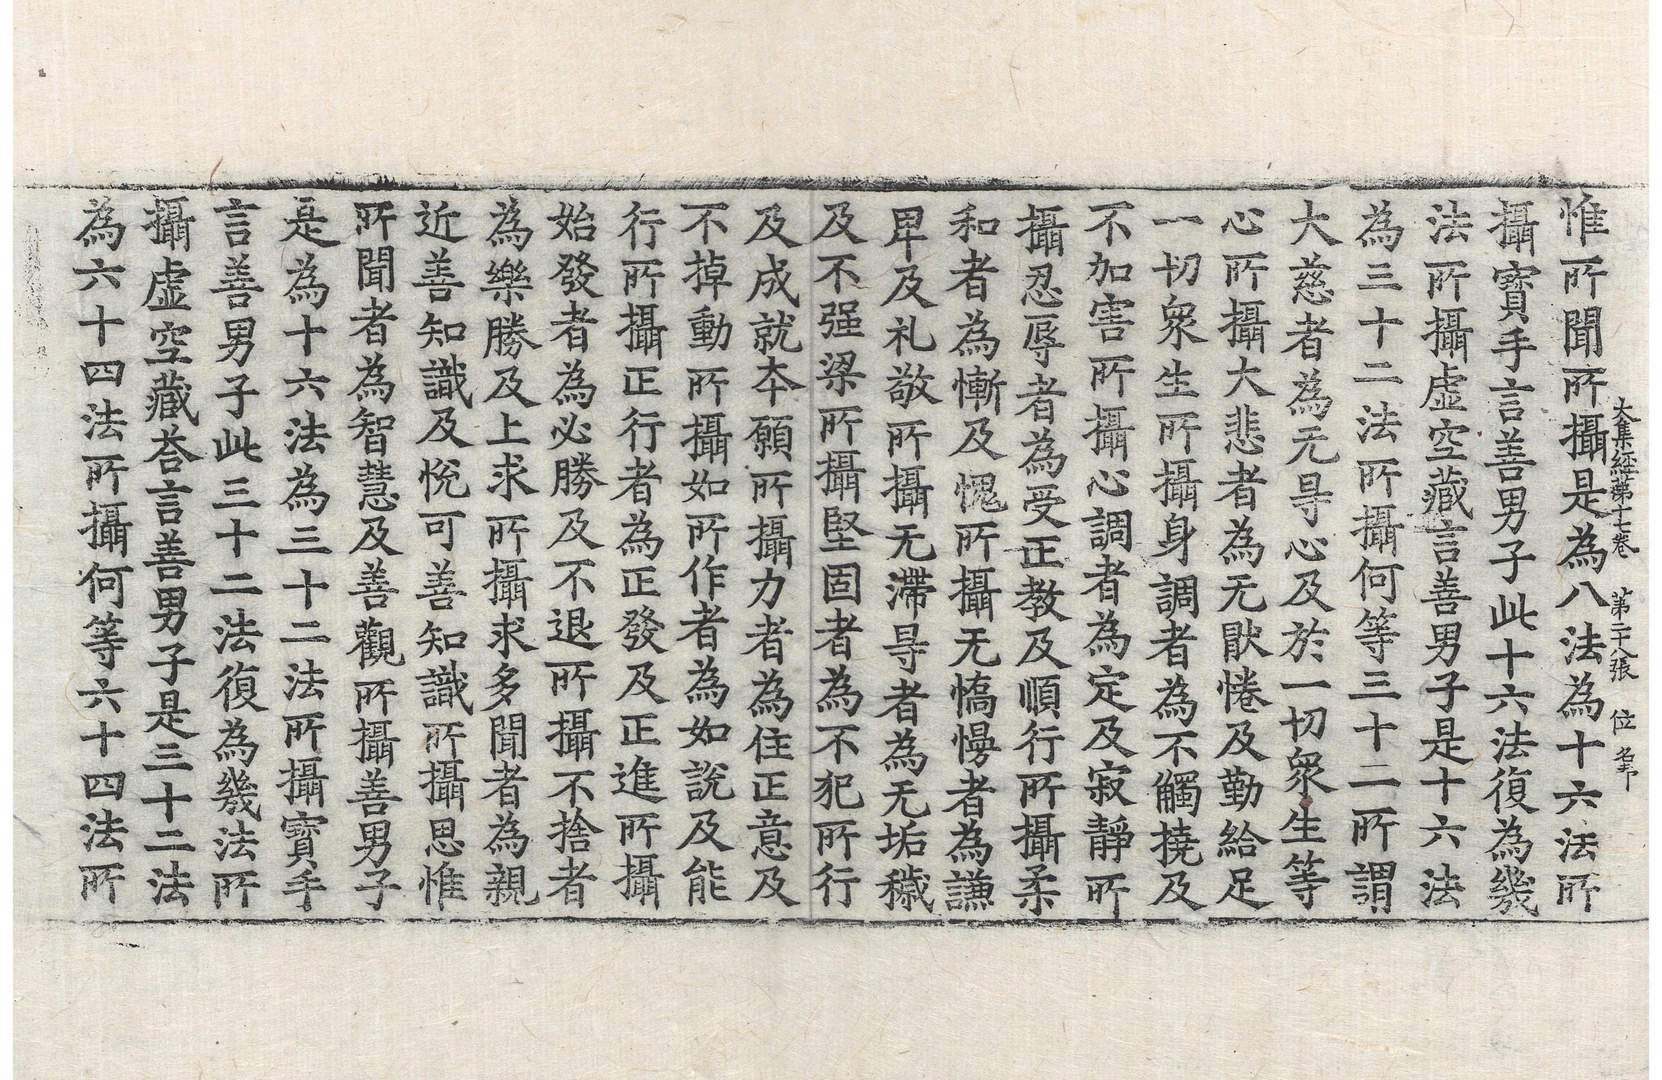 惟所聞所攝是為八法為十六法所
大集經苐十七卷　苐二十八張　位
攝寶手言善男子此十六法復為幾
法所攝虛空藏言善男子是十六法
為三十二法所攝何等三十二所謂
大慈者為无㝵心及於一切衆生等
心所攝大悲者為无猒惓及勤給足
一切衆生所攝身調者為不觸撓及
不加害所攝心調者為定及寂靜所
攝忍辱者為受正教及順行所攝柔
和者為慚及愧所攝无憍慢者為謙
卑及礼敬所攝无滯㝵者為无垢穢
及不强梁所攝堅固者為不犯所行
及成就夲願所攝力者為住正意及
不掉動所攝如所作者為如說及能
行所攝正行者為正發及正進所攝
始發者為必勝及不退所攝不捨者
為樂勝及上求所攝求多聞者為親
近善知識及悅可善知識所攝思惟
所聞者為智慧及善觀所攝善男子
是為十六法為三十二法所攝寶手
言善男子此三十二法復為幾法所
攝虛空藏荅言善男子是三十二法
為六十四法所攝何等六十四法所